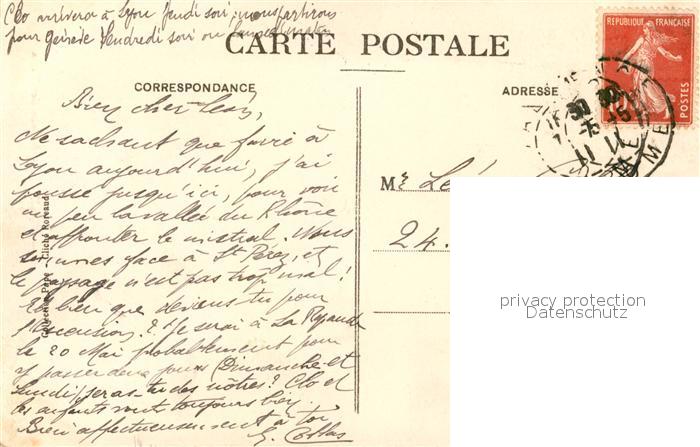 Clo arrivera à Lyon Jeudi soir; nous partirons
pour Genève Vendredi soir ou Samedi matin
CARTE POSTALE
RÉPUBLIQUE FRANÇAISE
10
POSTES
CORRESPONDANCE
ADRESSE
Bien cher Léon,
Ne sachant que faire à
Lyon aujourd'hui, j'ai
poussé jusqu'ici, pour voir
un peu la vallée du Rhône
et affronter le mistral. Nous
sommes face à St Péray, et
le paysage n'est pas trop mal!
Eh bien que deviens tu pour
l'Ascension? Je serai à La
le 20 Mai probablement pour
y passer deux jours (Dimanche et
Lundi) seras-tu des nôtres? Clo et
les enfants vont toujours bien.
Bien affectueusement à toi
Mr Lé
24.
Collection Pape Cliché Roreaud
privacy protection
Datenschutz